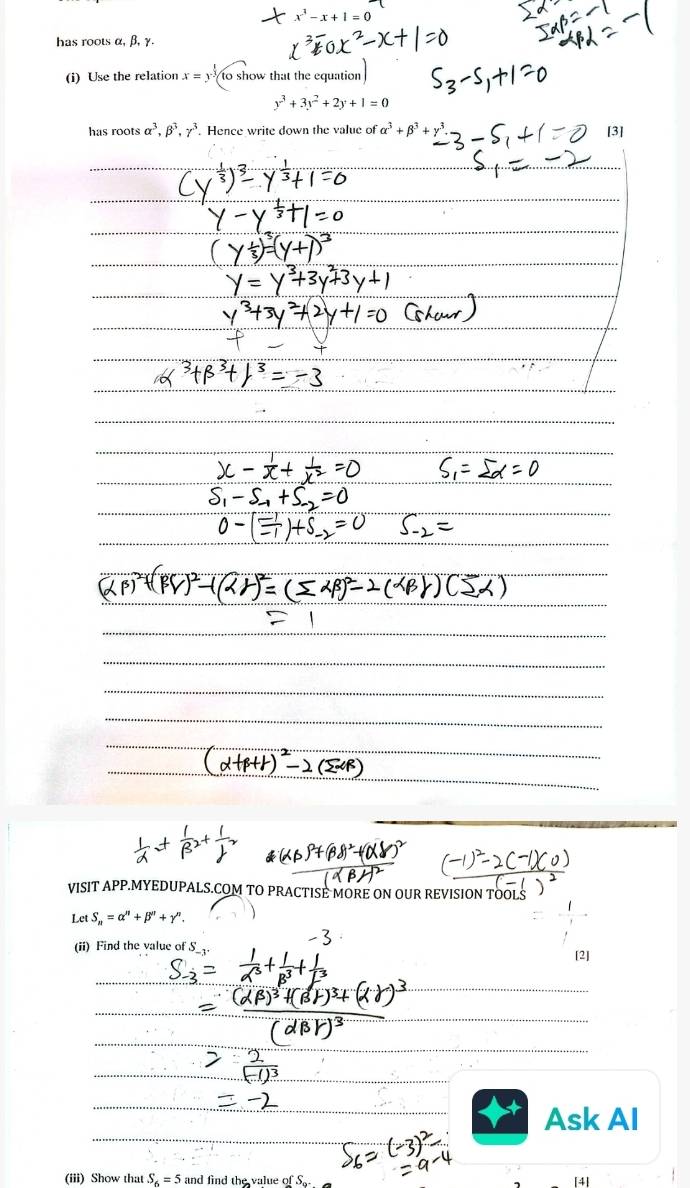 x³ - x + 1 = 0
Σαβ = -1
αβγ = -1
has roots α, β, γ.
x³ ± 0x² - x + 1 = 0
(i) Use the relation x = y^(1/3) to show that the equation
S₃ - S₁ + 1 = 0
y³ + 3y² + 2y + 1 = 0
has roots α³, β³, γ³. Hence write down the value of α³ + β³ + γ³. [3]
-3 - S₁ + 1 = 0
S₁ = -2
(y^(1/3))³ - y^(1/3) + 1 = 0
y - y^(1/3) + 1 = 0
(y^(1/3))³ = (y+1)³
y = y³ + 3y² + 3y + 1
y³ + 3y² + 2y + 1 = 0 (shown)
+ - +
α³ + β³ + γ³ = -3
x - 1/x + 1/x² = 0 S₁ = Σα = 0
S₁ - S₋₁ + S₋₂ = 0
0 - (-1/-1) + S₋₂ = 0 S₋₂ =
(αβ)² + (βγ)² + (αγ)² = (Σαβ)² - 2(αβγ)(Σα)
= 1
(α+β+γ)² - 2(Σαβ)
1/α² + 1/β² + 1/γ² (αβ)² + (βγ)² + (αγ)² / (αβγ)² (-1)² - 2(-1)(0) / (-1)²
VISIT APP.MYEDUPALS.COM TO PRACTISE MORE ON OUR REVISION TOOLS
Let Sₙ = αⁿ + βⁿ + γⁿ.
= 1/1
-3
(ii) Find the value of S₋₃. [2]
S₋₃ = 1/α³ + 1/β³ + 1/γ³
= (αβ)³ + (βγ)³ + (αγ)³ / (αβγ)³
= 2/(-1)³
= -2
Ask AI
S₆ = (-3)² -
= 9 - 4
(iii) Show that S₆ = 5 and find the value of S₉. [4]